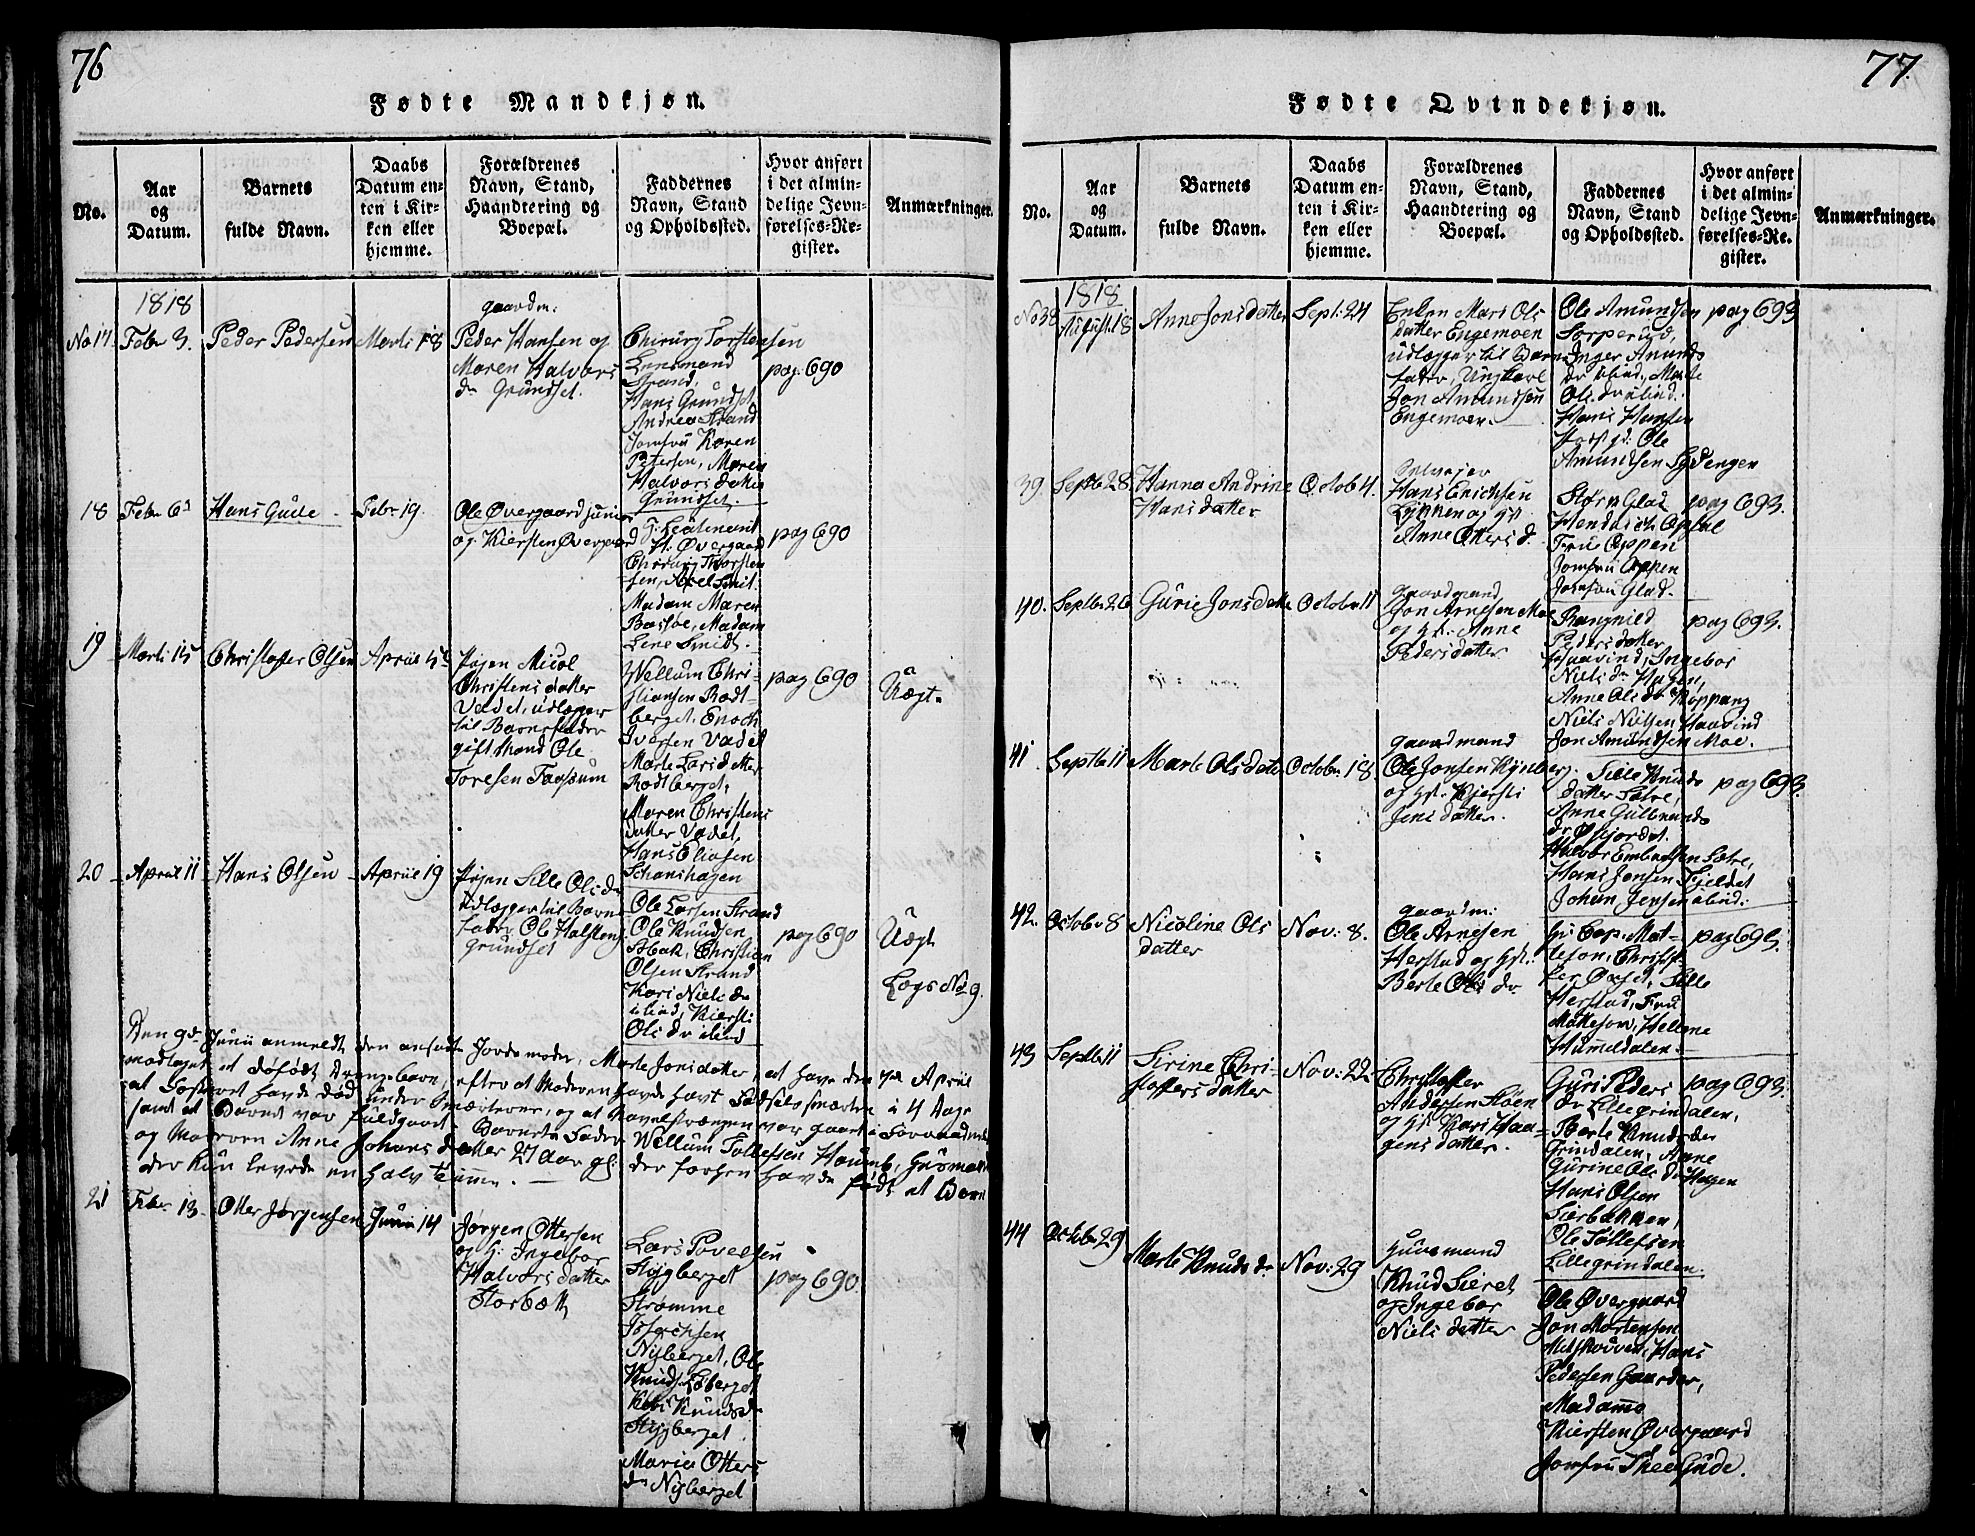 76
Fødte Mandkjøn.
No.
Aar
og
Datum.
Barnets
fulde Navn.
Daabs
Datum en-
ten i Kir-
ken eller
hjemme.
Forældrenes
Navn, Stand,
Haandtering og
Boepæl.
Faddernes
Navn, Stand
og Opholdssted.
Hvor anført
i det almin-
delige Jevn-
førelses-Re-
gister.
Anmærkninger.
1818
No 17.
Febr 3.
Peder Pedersen
Marti 18
gaardm:
Peder Hansen og
Maren Halvors
dr Grundset.
Chirurg Torstensen
Lensmand
Strand,
Hans Grundset
Andrea Strand
Jomfru Karen
Petersen, Maren
Halvorsdatter
Grundset.
pag. 690
18
Febr 6
Hans Gude
Febr 19.
Ole Øvergaard junior
og Kiersten Øvergaard
Leutenant
H. Øvergaard
Chirurg Thorsten
sen, Axel Smit
Madam Maren
Bassøe, Madam
Lene Smidt.
pag 690
19
Marti 15
Christoffer Olsen
April 5
Pigen
Christensdatter
Vadet, udlægger
til Barnefader
gift Mand Ole
Toresen
Wellum Chri-
stiansen Rodt-
berget, Enoch
Iversen Vadet
Marte Larsdatter
Rodtberget,
Maren Christens
datter Vadet,
Hans Eliasen
pag 690
Uægt.
20
April 11
Hans Olsen
April 19
Pigen Sille Olsdr
udlægger til Barne
fader Ole Halstens
Grundset
Ole Larsen Strand
Ole Knudsen
Christian
Olsen Strand
Kari Niels dr
ibid, Kiersti
Ols dr ibid
pag 690
Uægt
Lægd No 9.
Den 9de Junii anmeldte den ansatte Jordemoder, Marte Jonsdatter, at have den 7de April
modtaget et dødfødt Drengebarn, efter at Moderen havde havt Fødselssmerter i 4 Dage
at Fosteret havde død under Smerterne, og at Navelstrengen var gaaet i Forraadnelse
samt at Barnet var fuldgaaet. Barnets Fader Wellum Tollefsen Houmb, Husmand
og Moderen Anne Johansdatter 27 Aar gl. der forhen havde født et Barn
der kun levede en halv Time.
21
Febr 13.
Otter Jørgensen
Junii 14
Jørgen Ottersen
og H. Ingebor
Halvorsdatter
Storbæk
Lars Povelsen
Stygberget
Strømme
Nyberget, Ole
Knuds. Løberget
Knudsdr
Stygberget.
Maria Otters
dr Nyberget
pag 690.
77.
Fødte Qvindekjøn.
No.
Aar
og
Datum.
Barnets
fulde Navn.
Daabs
Datum en-
ten i Kir-
ken eller
hjemme.
Forældrenes
Navn, Stand,
Haandtering og
Boepæl.
Faddernes
Navn, Stand
og Opholdssted.
Hvor anført
i det almin-
delige Jevn-
førelses-Re-
gister.
Anmærkninger.
1818
No 38
August 18
Anne Jonsdatter
Sept: 24
Enken Mari Ols
datter Engemoen
udlægger til Barne
fader, Ungkarl
Jon Amundsen
Engemoen.
Ole Amundsen
Sorperud,
Inger Amunds
dr ibid, Marte
Ols. dr ibid.
Hans Hansen
Ole
Amundsen Sydengen
pag 693
39
Septb 28.
Hanna Andrine
Hansdatter
Octob 4.
Hans Erichsen
Løkken og H:
Anne Ottersd.
Glad
Hendrich Oppen
Frue Oppen
Jomfru Oppen
Jomfru Glad.
pag 693.
40.
Septbr 26
Gurie Jonsdatter
Octobr 11
gaardmand
Jon Arnesen Moe
og H. Anne
Pedersdatter
Rangnild
Pedersdatter
Haavind, Ingebor
Niels dr Hagen,
Anne Ols dr Koppang
Niels Nielsen Haavind
Jon Amundsen Moe.
pag 693.
41
Septb 11
Marte Olsdatter
Octobr. 18
gaardmand
Ole Jonsen Rynberg
og H. Kjersti
Jensdatter.
Sille Knuds
datter Sætre,
Anne Gulbrands
dr Øfjordet
Halvor Embretsen Sætre,
Hans Jonsen Fjeldet
Johan Jensen ibid.
pag 693.
42.
October 8
Nicoline Ols
datter
Nov: 8.
gaardm:
Ole Arnesen
Herstad og H.:
Berte Ols dr
Hr Cap. Mat-
teson, Christof-
fer Øvset, Sille
Herstad, Frue
Matteson, Hellene
Hummeldalen.
pag 693.
43
Septb 11
Sirine Chri-
stoffersdatter
Nov: 22
Christoffer
Andersen Sløen
og H. Kari Haa-
gensdatter.
Guri Peders
dr Lillegrindalen,
Berte Knudsder
Grindalen, Anne
Gurine Ols dr Hagen
Hans Olsen
Sierbakken,
Ole Tollefsen
Lillegrindalen.
pag 693.
44
October 29
Marte Knuds dr
Nov: 29
Huusmand
Knud Sieret
og Ingebor
Nielsdatter
Ole Øvergaard
Jon Mortensen
Hans
Pedersen Gaarder,
Madamme
Kiersten Øvergaard
Jomfru Thea Gude.